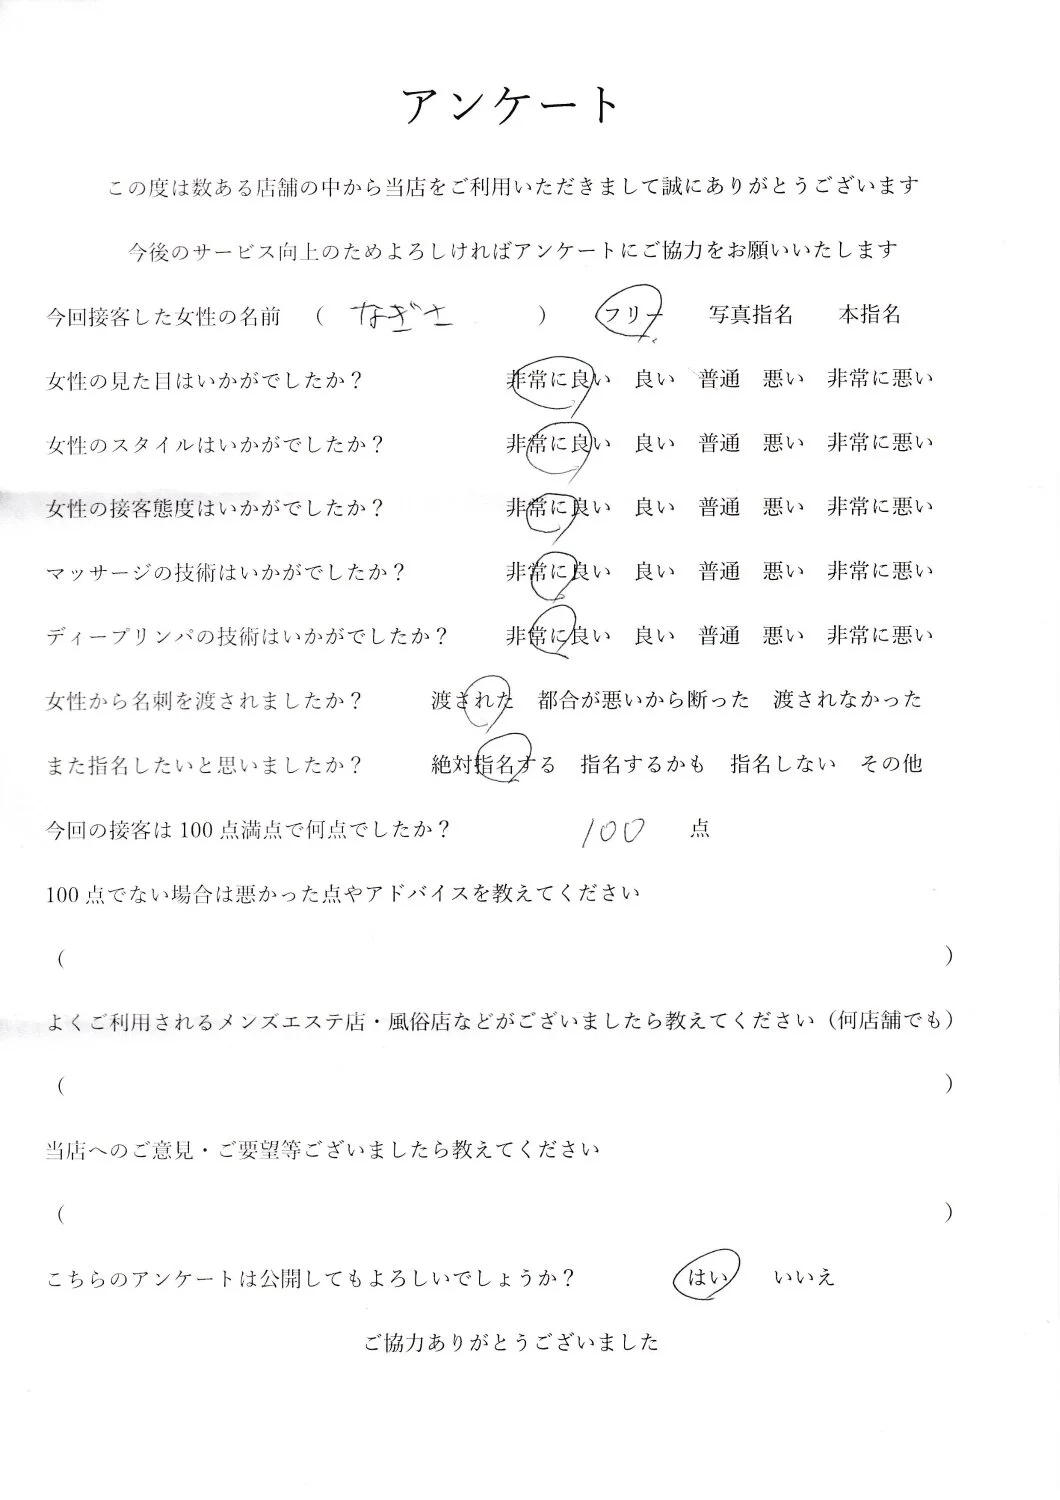 アンケート
この度は数ある店舗の中から当店をご利用いただきまして誠にありがとうございます
今後のサービス向上のためよろしければアンケートにご協力をお願いいたします
今回接客した女性の名前 ( なぎさ ) フリー 写真指名 本指名
女性の見た目はいかがでしたか？ 非常に良い 良い 普通 悪い 非常に悪い
女性のスタイルはいかがでしたか？ 非常に良い 良い 普通 悪い 非常に悪い
女性の接客態度はいかがでしたか？ 非常に良い 良い 普通 悪い 非常に悪い
マッサージの技術はいかがでしたか？ 非常に良い 良い 普通 悪い 非常に悪い
ディープリンパの技術はいかがでしたか？ 非常に良い 良い 普通 悪い 非常に悪い
女性から名刺を渡されましたか？ 渡された 都合が悪いから断った 渡されなかった
また指名したいと思いましたか？ 絶対指名する 指名するかも 指名しない その他
今回の接客は 100 点満点で何点でしたか？ 100 点
100 点でない場合は悪かった点やアドバイスを教えてください
( )
よくご利用されるメンズエステ店・風俗店などがございましたら教えてください（何店舗でも）
( )
当店へのご意見・ご要望等ございましたら教えてください
( )
こちらのアンケートは公開してもよろしいでしょうか？ はい いいえ
ご協力ありがとうございました